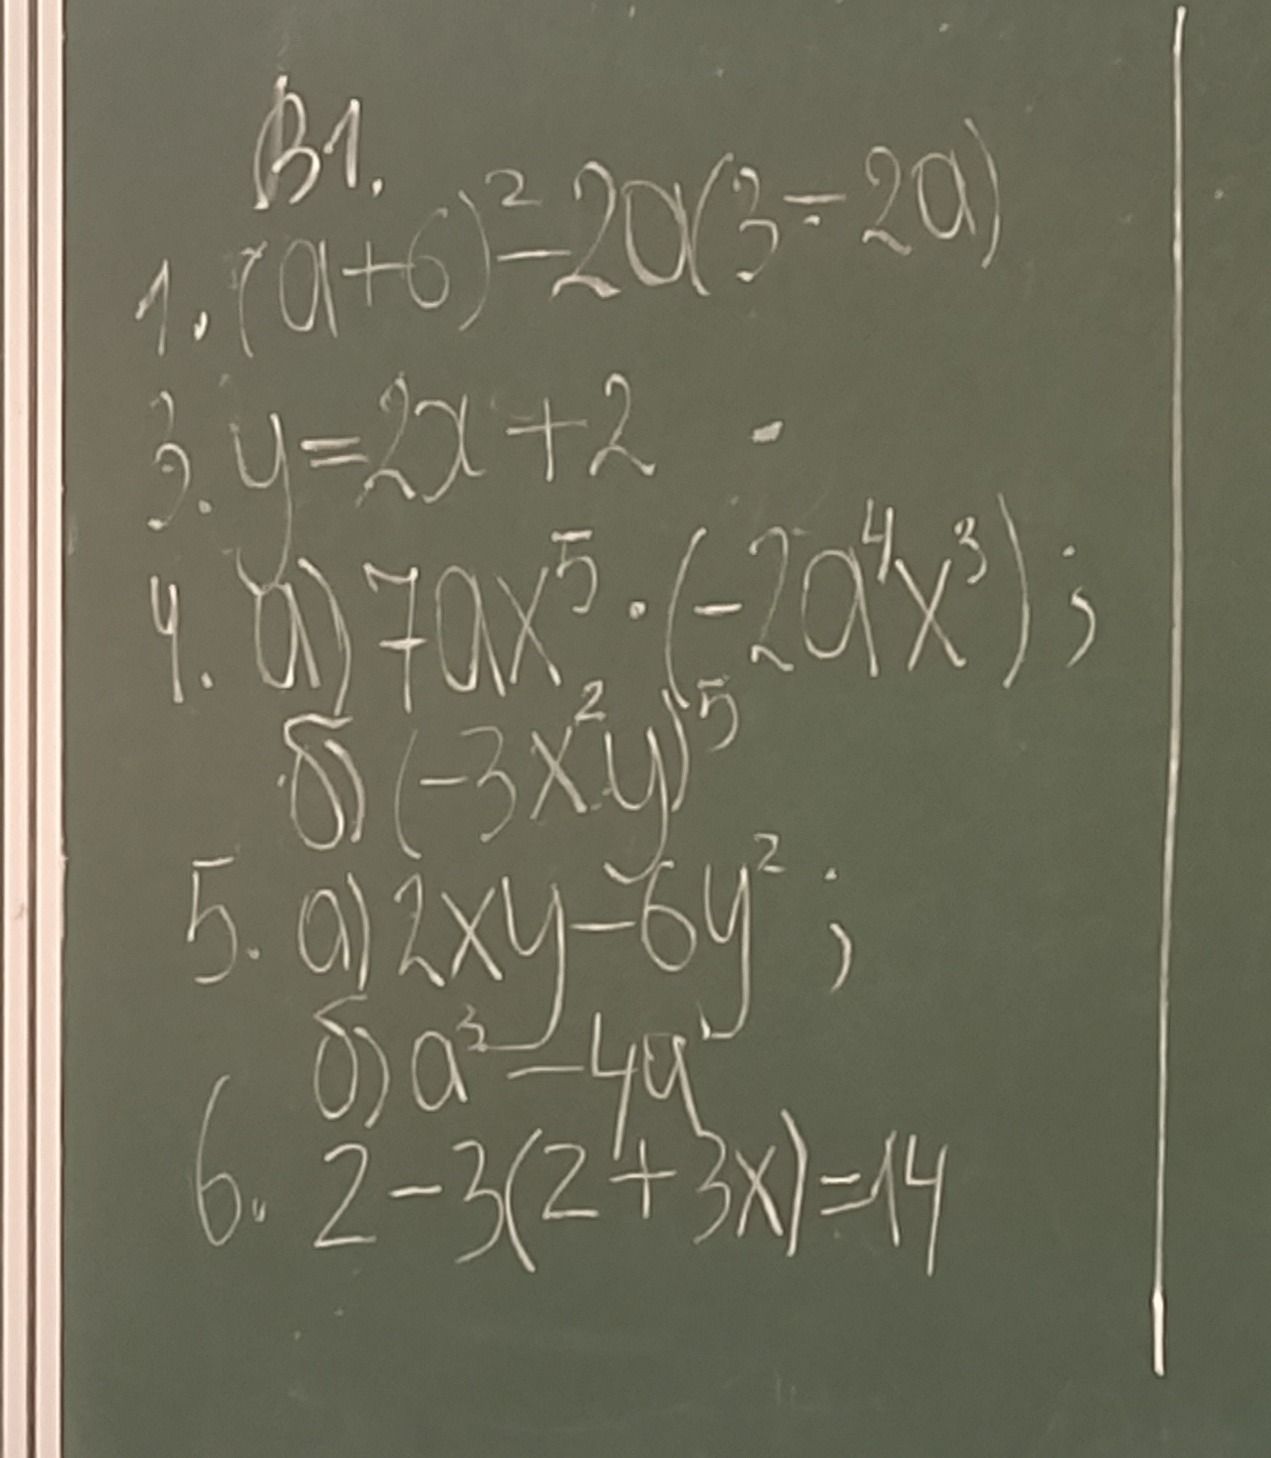 В1.
1. (a+6)² - 2a(3 - 2a)
3. y = 2x + 2
4. а) 7ax⁵ · (-2a⁴x³) ;
б) (-3x²y)⁵
5. а) 2xy - 6y² ;
б) a³ - 4a
6. 2 - 3(2 + 3x) = 14